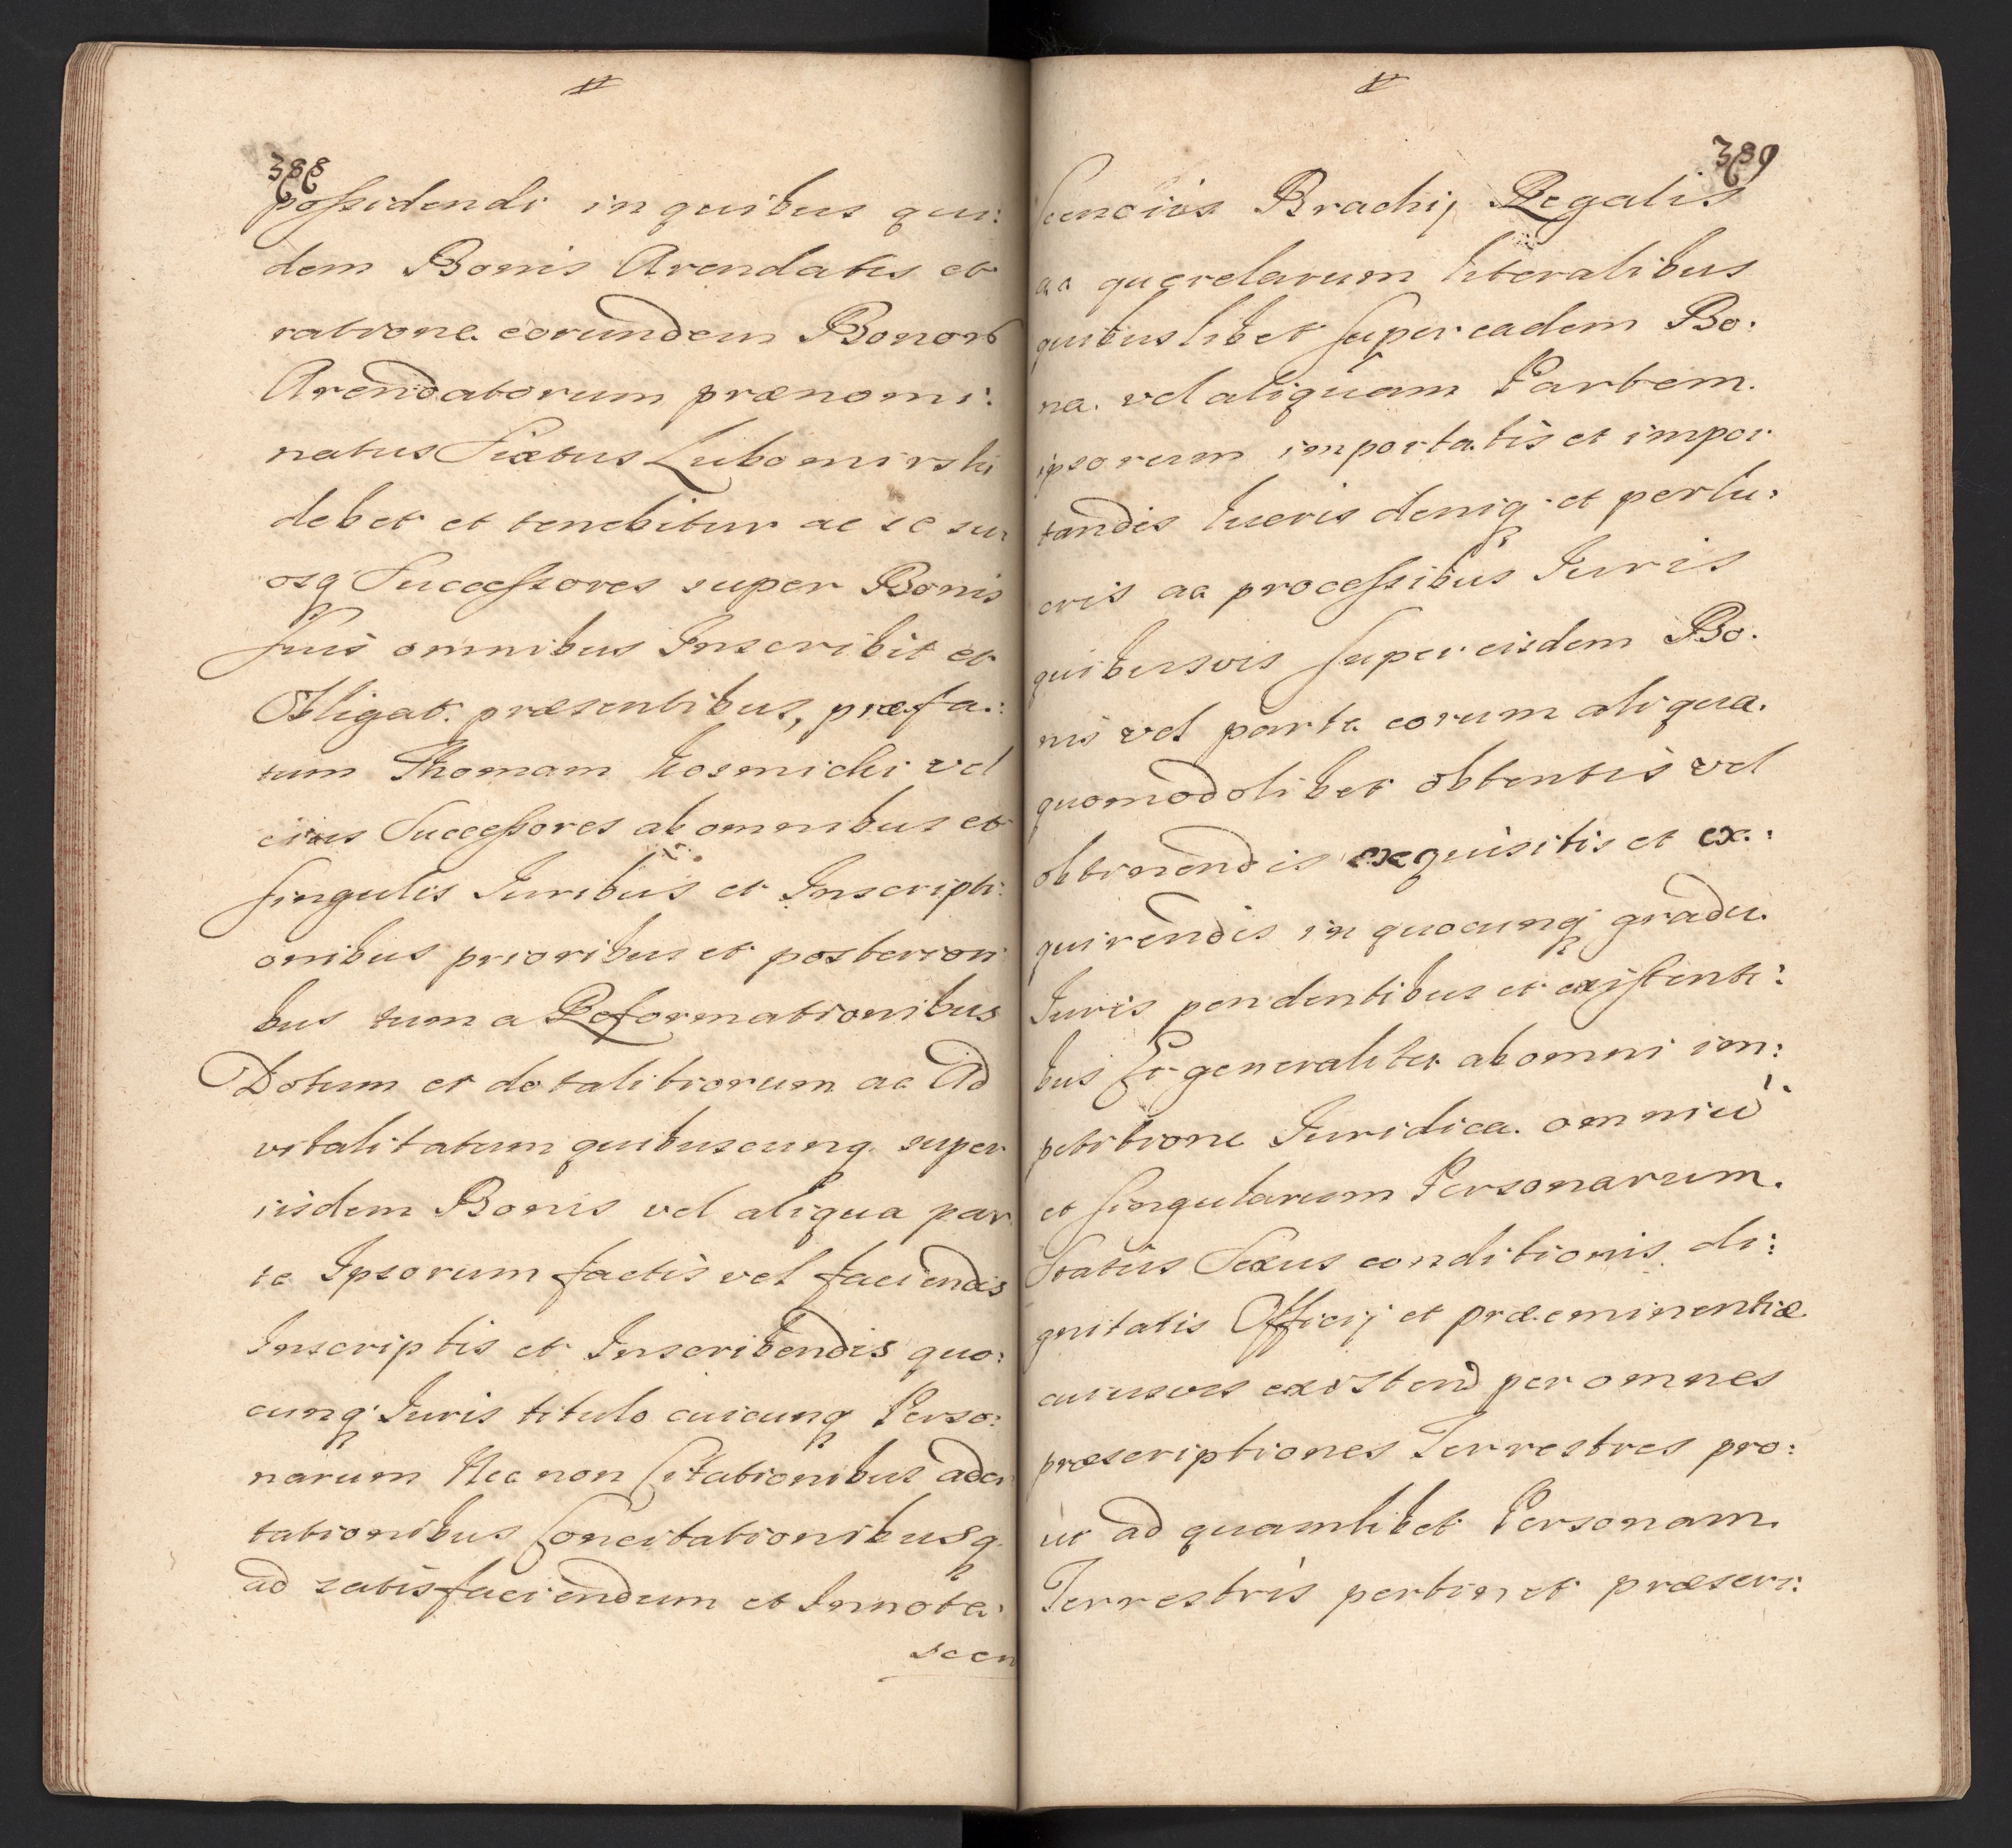 388
possidendi in quibus qui:
dem Bonis Arendatis et
ratione eorundem Bonor
Arendatorum prænomi:
natus Sixtus Lubomirski
debet et tenebitur ac se su
osq Successores super Bonis
suis omnibus Inscribit et
Obligat præsentibus, præfa:
tum Thomam Kosmicki vel
eius Successores ab omnibus et
singulis Iuribus et Inscripti:
onibus prioribus et posteriori
bus tum a Reformationibus
Dotum et dotalitiorum ac Ad
vitalitatum quibuscunq super
iisdem Bonis vel aliqua par
te Ipsorum factis vel faciendis
Inscriptis et Inscribendis quo:
cunq Iuris titulo cuicunq Perso:
narum Nec non Citationibus adci
tationibus Concitationibusq
ad satisfaciendum et Innote:
scen
389
scencios Brachij Regalis
ac querelarum literalibus
quibuslibet super eadem Bo:
na vel aliquam Partem
ipsorum importatis et impor
tandis lucris deniq et perlu:
cris ac processibus Iuris
quibusvis super eisdem Bo:
nis vel parte eorum aliqua
quomodolibet obtentis vel
obtinendis exquisitis et ex:
quirendis in quocunq gradu
Iuris pendentibus et existenti:
bus Et generaliter ab omni im:
petitione Iuridica omniũ
et singularum Personarum
Status Sexus conditionis di:
gnitatis Officij et præeminentiæ
cuiusvis existend per omnes
præscriptiones Terrestres pro:
ut ad quamlibet Personam
Terrestris pertinet præscri: